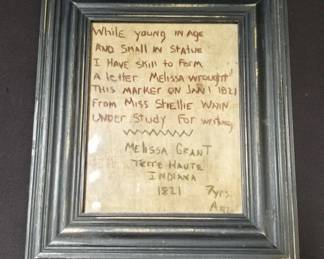 While young in Age
And Small in Statue
I Have skill to Form
A letter Melissa wrought
This marker on Jan 1 1821
From Miss Shellie Wain
Under Study For writing
Melissa Grant
Terre Haute
Indiana
1821 7yrs.